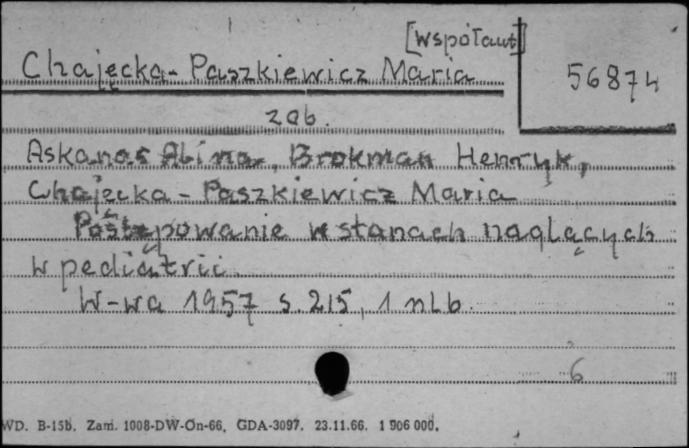 [współaut]
Chajęcka-Paszkiewicz Maria
56874
zob.
Askanas Alina, Brokman Henryk,
Chajęcka-Paszkiewicz Maria
Postępowanie w stanach naglących
w pediatrii
W-wa 1957 s. 215, 1 nlb.
6
WD. B-15b. Zam. 1008-DW-On-66, GDA-3097. 23.11.66. 1 906 000.